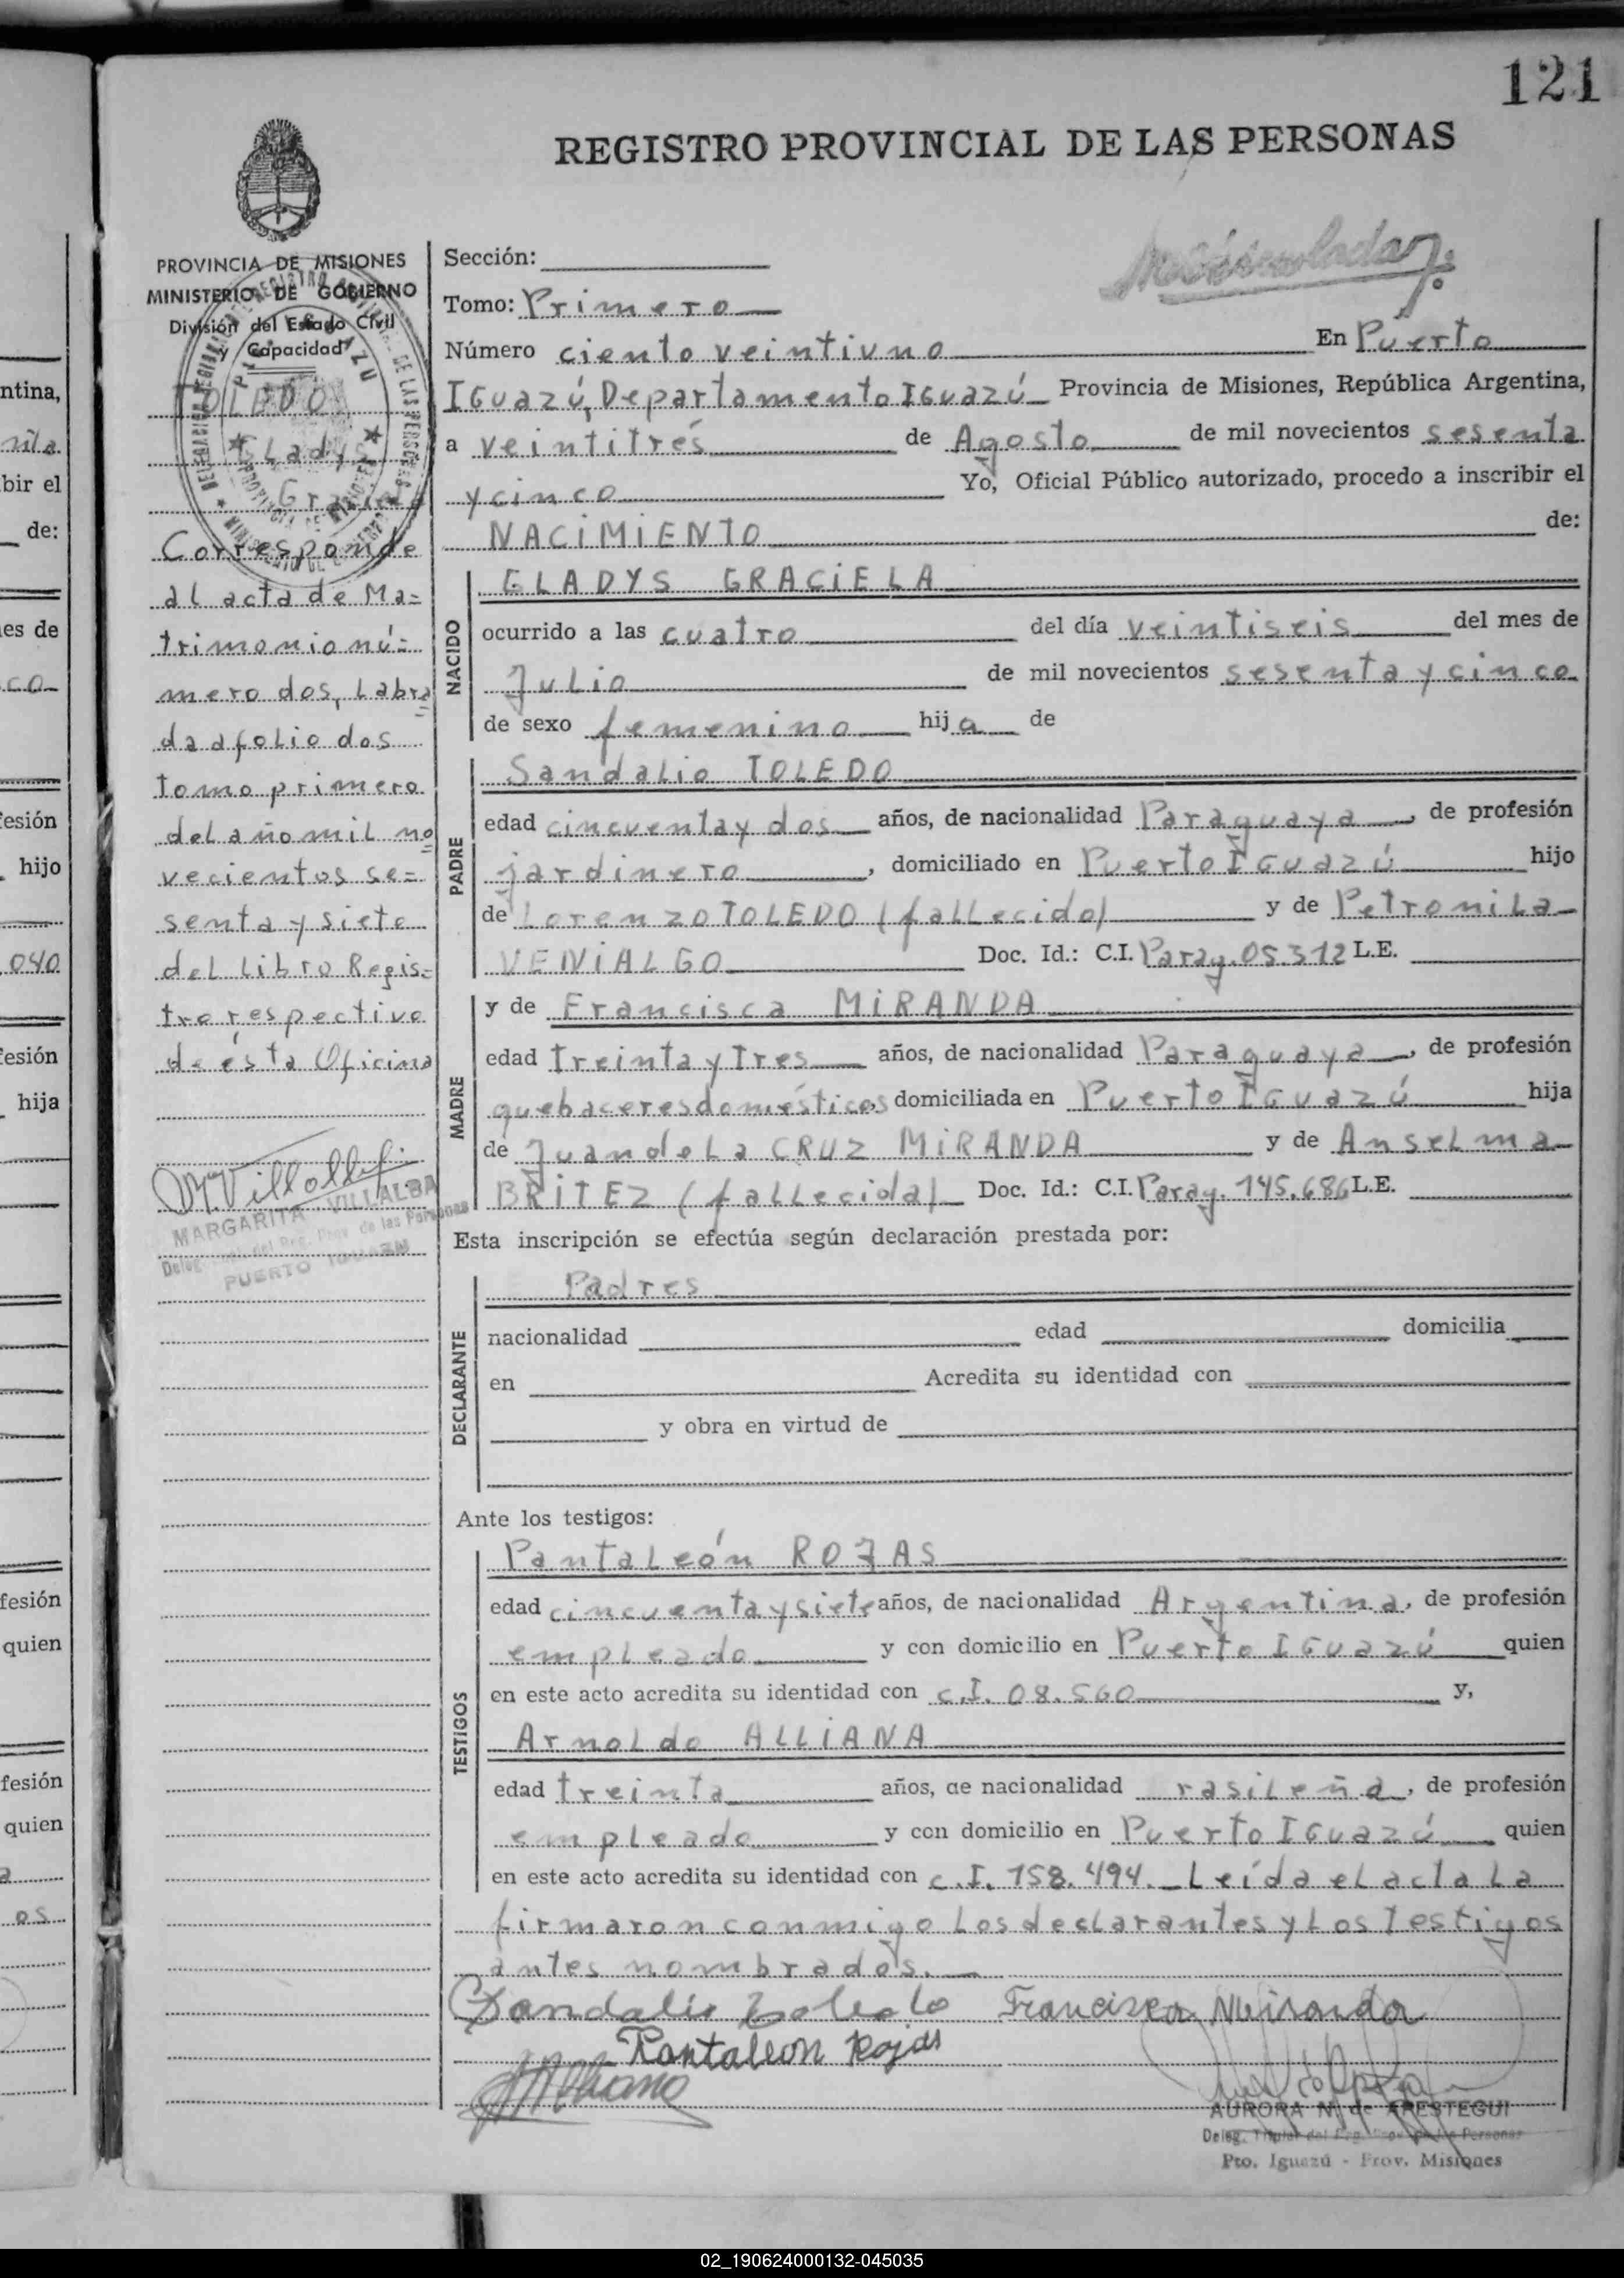 121
REGISTRO PROVINCIAL DE LAS PERSONAS
PROVINCIA DE MISIONES
MINISTERIO DE GOBIERNO
División del Estado Civil
y Capacidad
TOLEDO
Gladys
Graciela
Corresponde
al acta de Ma=
trimonio nú=
mero dos, Labra
da a folio dos
tomo primero
del año mil no
vecientos se=
senta y siete
del Libro Regis=
tro respectivo
de ésta Oficina
MARGARITA VILLALBA
Reg. Prov. de las Personas
PUERTO IGUAZU
Sección:
Tomo: Primero
Número ciento veintiuno En Puerto
IGuazú, Departamento IGuazú Provincia de Misiones, República Argentina,
a veintitrés de Agosto de mil novecientos sesenta
y cinco Yo, Oficial Público autorizado, procedo a inscribir el
NACiMiENTO de:
NACIDO
GLADYS GRACiELA
ocurrido a las cuatro del día veintiseis del mes de
Julio de mil novecientos sesenta y cinco
de sexo femenino hija de
PADRE
Sandalio TOLEDO
edad cincuenta y dos años, de nacionalidad Paraguaya, de profesión
jardinero, domiciliado en Puerto IGuazú hijo
de Lorenzo TOLEDO (fallecido) y de Petronila
VENiALGO Doc. Id.: C.I. Parag. 05.312 L.E.
MADRE
y de Francisca MiRANDA
edad treinta y tres años, de nacionalidad Paraguaya, de profesión
quehaceres domésticos, domiciliada en Puerto IGuazú hija
de Juan de La CRUZ MiRANDA y de Anselma
BRiTEZ (fallecida) Doc. Id.: C.I. Parag. 145.686 L.E.
Esta inscripción se efectúa según declaración prestada por:
DECLARANTE
Padres
nacionalidad edad domicilia
en Acredita su identidad con
y obra en virtud de
Ante los testigos:
TESTIGOS
Pantaleón ROJAS
edad cincuenta y siete años, de nacionalidad Argentina, de profesión
empleado y con domicilio en Puerto IGuazú quien
en este acto acredita su identidad con c.I. 08.560 y,
Arnoldo ALLiANA
edad treinta años, de nacionalidad rasileña, de profesión
empleado y con domicilio en Puerto IGuazú quien
en este acto acredita su identidad con c.I. 158.494. Leída el acta la
firmaron conmigo los declarantes y los testigos
antes nombrados.
Sandalio Toledo Francisca Miranda
Pantaleon Rojas
AURORA N. de ARESTEGUI
Deleg. Titular del Reg. Prov. de las Personas
Pto. Iguazú - Prov. Misiones
ntina,
bir el
de:
es de
co
esión
hijo
040
esión
hija
fesión
quien
fesión
quien
os
02_190624000132-045035